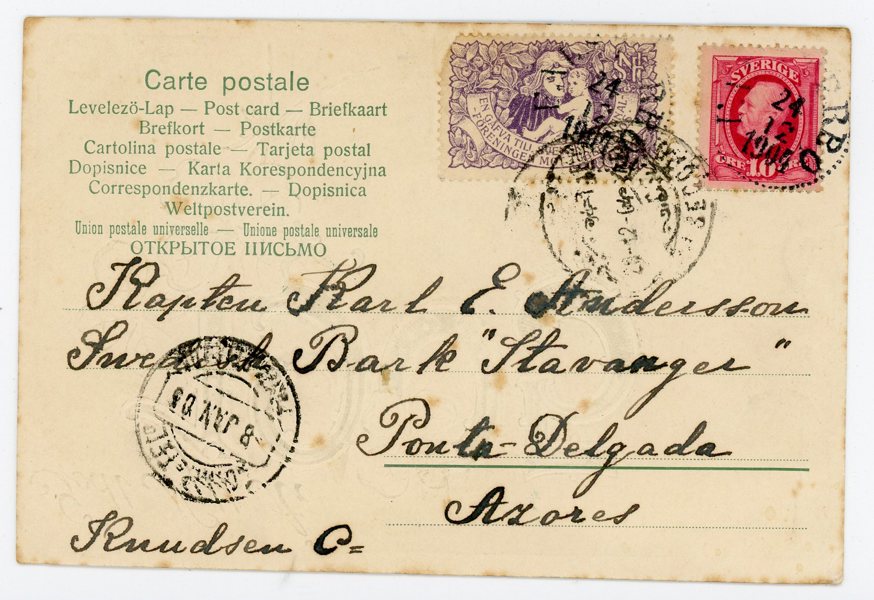 Carte postale
Levelezö-Lap — Post card — Briefkaart
Brefkort — Postkarte
Cartolina postale — Tarjeta postal
Dopisnice — Karta Korespondencyjna
Correspondenzkarte. — Dopisnica
Weltpostverein.
Union postale universelle — Unione postale universale
ОТКРЫТОЕ ПИСЬМО
EN GÅFVA TILL
FÖRENINGEN MOT
SVERIGE
10
24
12
24
12
Kapten Karl E. Andersson
Swedish Bark "Stavanger"
Ponta-Delgada
Azores
Knudsen Co=
8 JAN 05